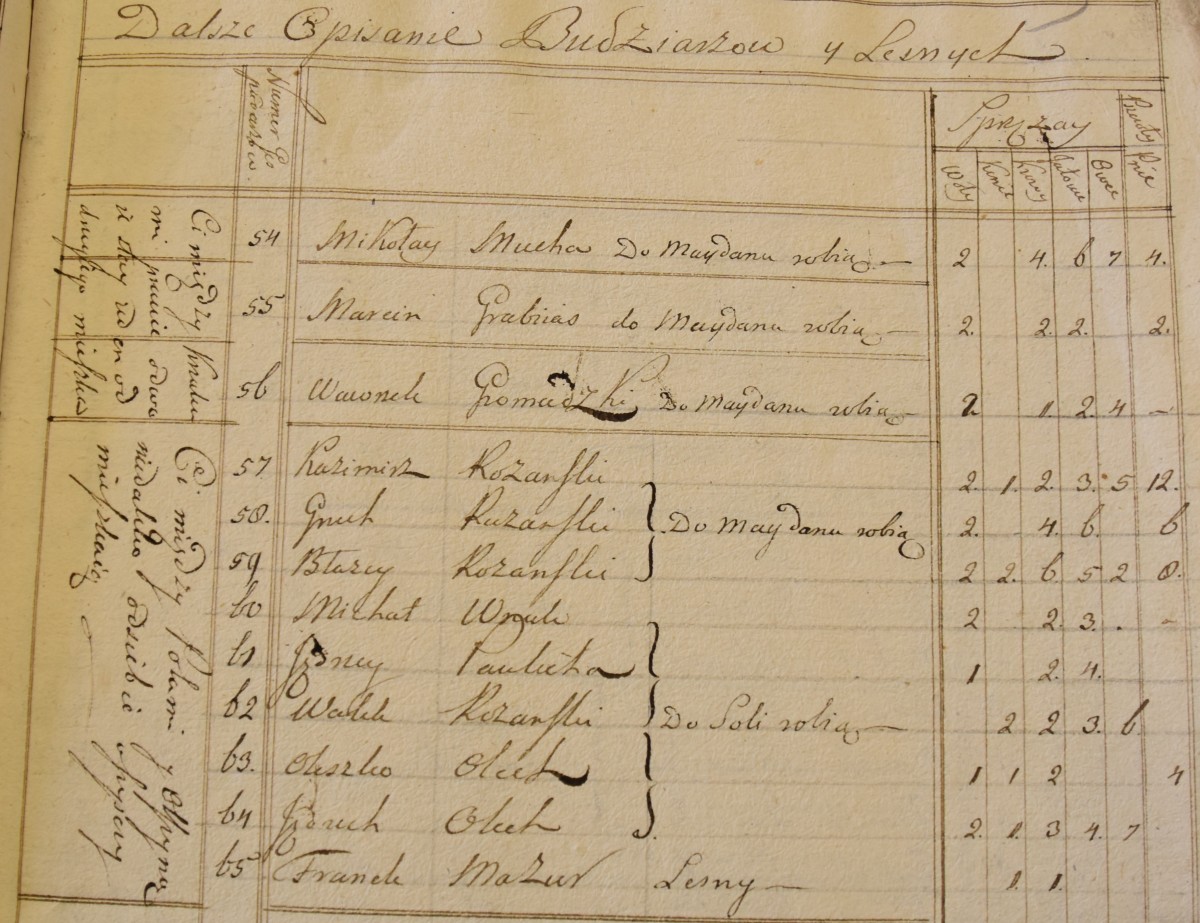 Dalsze Opisanie Budziarzow y Lesnych
Numer
Sprzęzay
Woły Konie Krowy Jałowe Owce Pnie
Ci między
mi prawie
w stay ieden od
drugiego mieszka
54 Mikołay Mucha Do Maydanu robią — 2 4. 6 7 4.
55 Marcin Grabias do Maydanu robią — 2. 2. 2. 2.
56 Wawonek Gromadzki Do Maydanu robią — 2 1. 2. 4 —
Ci między Polami y Olszyną
niedaleko odsiebie opisany
mieszkaią
57 Kazimirz Rozanski 2. 1. 2. 3. 5 12.
58. Gruch Rozanski Do Maydanu robią 2. 4. 6. 6
59 Błazey Rozanski 2 2. 6 5 2 8.
60 Michał Wnuk 2 2. 3. . -
61 Jędrzey Pauluta 1 2. 4.
62 Walek Rozanski Do Soli robią — 2 2 3. 6
63. Oleszko Olech 1 1 2 4
64 Jędruch Olech 2. 1. 3 4. 7
65 Franek Mazur Lesny — 1. 1.